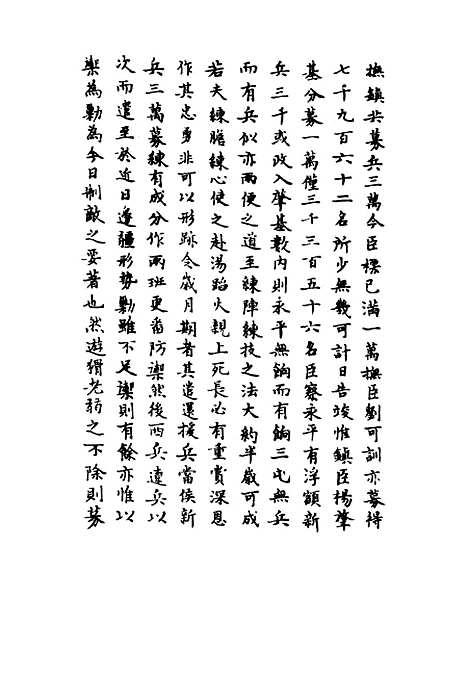 撫鎮共募兵三萬今臣標已滿一萬撫臣劉可訓亦募得
七千九百六十二名所少無幾可計日告竣惟鎮臣楊肇
基分募一萬僅三千三百五十六名臣察永平有浮額新
兵三千或改入肇基數內則永平無餉而有餉三屯無兵
而有兵似亦兩便之道至練陣練技之法大約半歲可成
若夫練膽練心使之赴湯蹈火親上死長必有重賞深恩
作其忠勇非可以形跡令歲月期者其遣還援兵當俟新
兵三萬募練有成分作兩班更番防禦然後西兵遼兵以
次而遣至於近日邊疆形勢勦雖不足禦則有餘亦惟以
禦為勦為今日制敵之要著也然遊猾老弱之不除則募